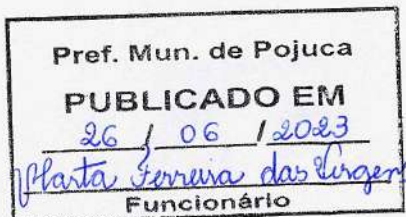 Pref. Mun. de Pojuca
PUBLICADO EM
26 / 06 / 2023
Marta Ferreira das Virgens
Funcionário